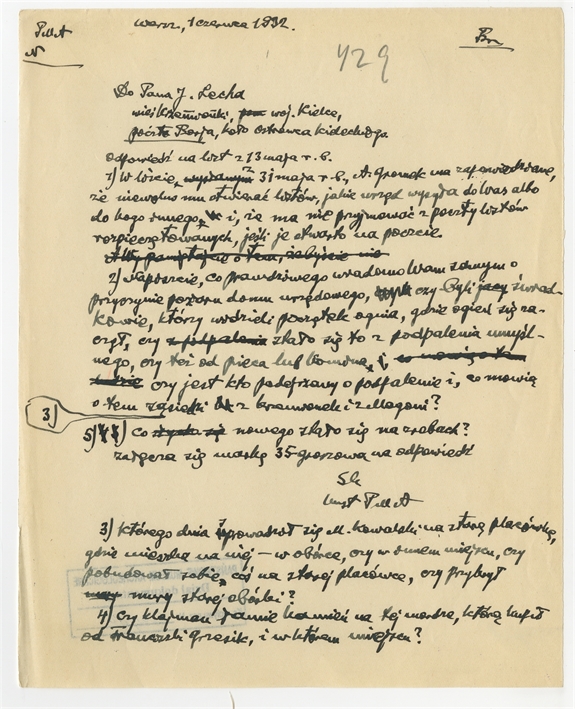 Warsz, 1 czerwca 1932.
429
Do Pana J. Lecha
wieś Krzemionki, woj. Kielce,
poczta Borja, koło Ostrowca kieleckiego
odpowiedź na list z 13 maja r. b.
1) W liście, wysłanym 31 maja r. b., A. Gromek ma zapowiedziane,
że niewolno mu otwierać listów, jakie urząd wysyła do Was albo
do kogo innego, i, że ma nie przyjmować z poczty listów
rozpieczętowanych, jeśli je otwarto na poczcie.
2) Napiszcie, co prawdziwego wiadomo Wam samym o
przyczynie pożaru domu urzędowego, czy byli jacy świad-
kowie, którzy widzieli początek ognia, gdzie ogień się za-
czął, czy z podpalenia stało się to z podpalenia umyśl-
nego, czy też od pieca lub komina, i,
czy jest kto podejrzany o podpalenie i, co mówią
o tem sąsiedzi z Krzemionek i z Magoni?
3)
5) co nowego stało się na zrębach?
załącza się markę 35-groszową na odpowiedź
3) którego dnia wprowadził się M. Kowalski na starą placówkę,
gdzie mieszka na niej – w obórce, czy w innem miejscu, czy
pobudował sobie coś na starej placówce, czy przykrył
mury starej obórki?
4) czy Klajman łamie kamień na tej mordze, którą kupił
od Grzesik, i w którem miejscu?